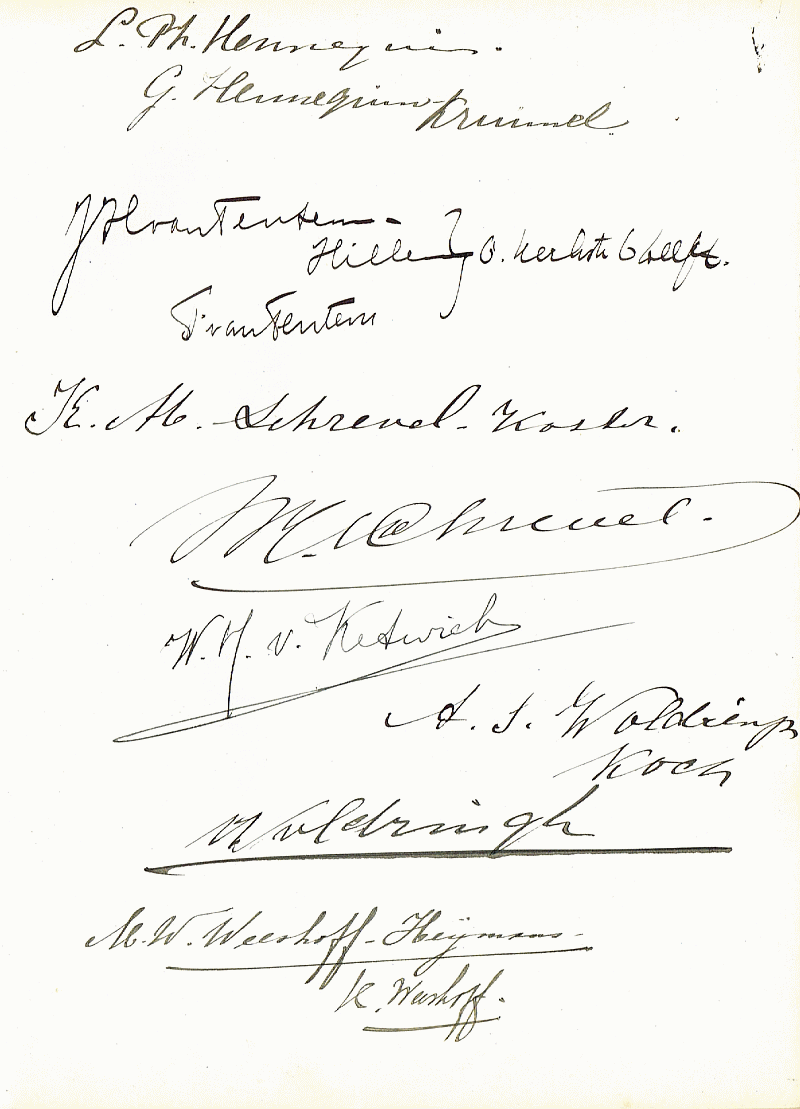 L. Ph. Hennequin.
G. Hennequin-Krummel
J H van Tentem-
Hille } O. Kerkstr 6 Delft.
T. van Tentem
K. M. Schrevel-Koster.
Schrevel.
W. H. v. Ketwich
A. S. Woldringh
Koch
Woldringh
M. W. Weeshoff-Heijmans-
K. Weeshoff.